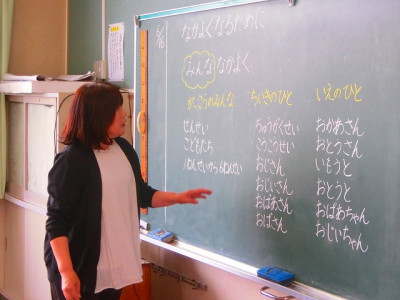 6/16
なかよくなるために
みんな なかよく
がっこうのみんな
せんせい
こどもたち
1ねんせいから6ねんせい
ちいきのひと
ちゅうがくせい
こうこうせい
おじさん
おじいさん
おばあさん
おばさん
いえのひと
おかあさん
おとうさん
いもうと
おとうと
おばあちゃん
おじいちゃん